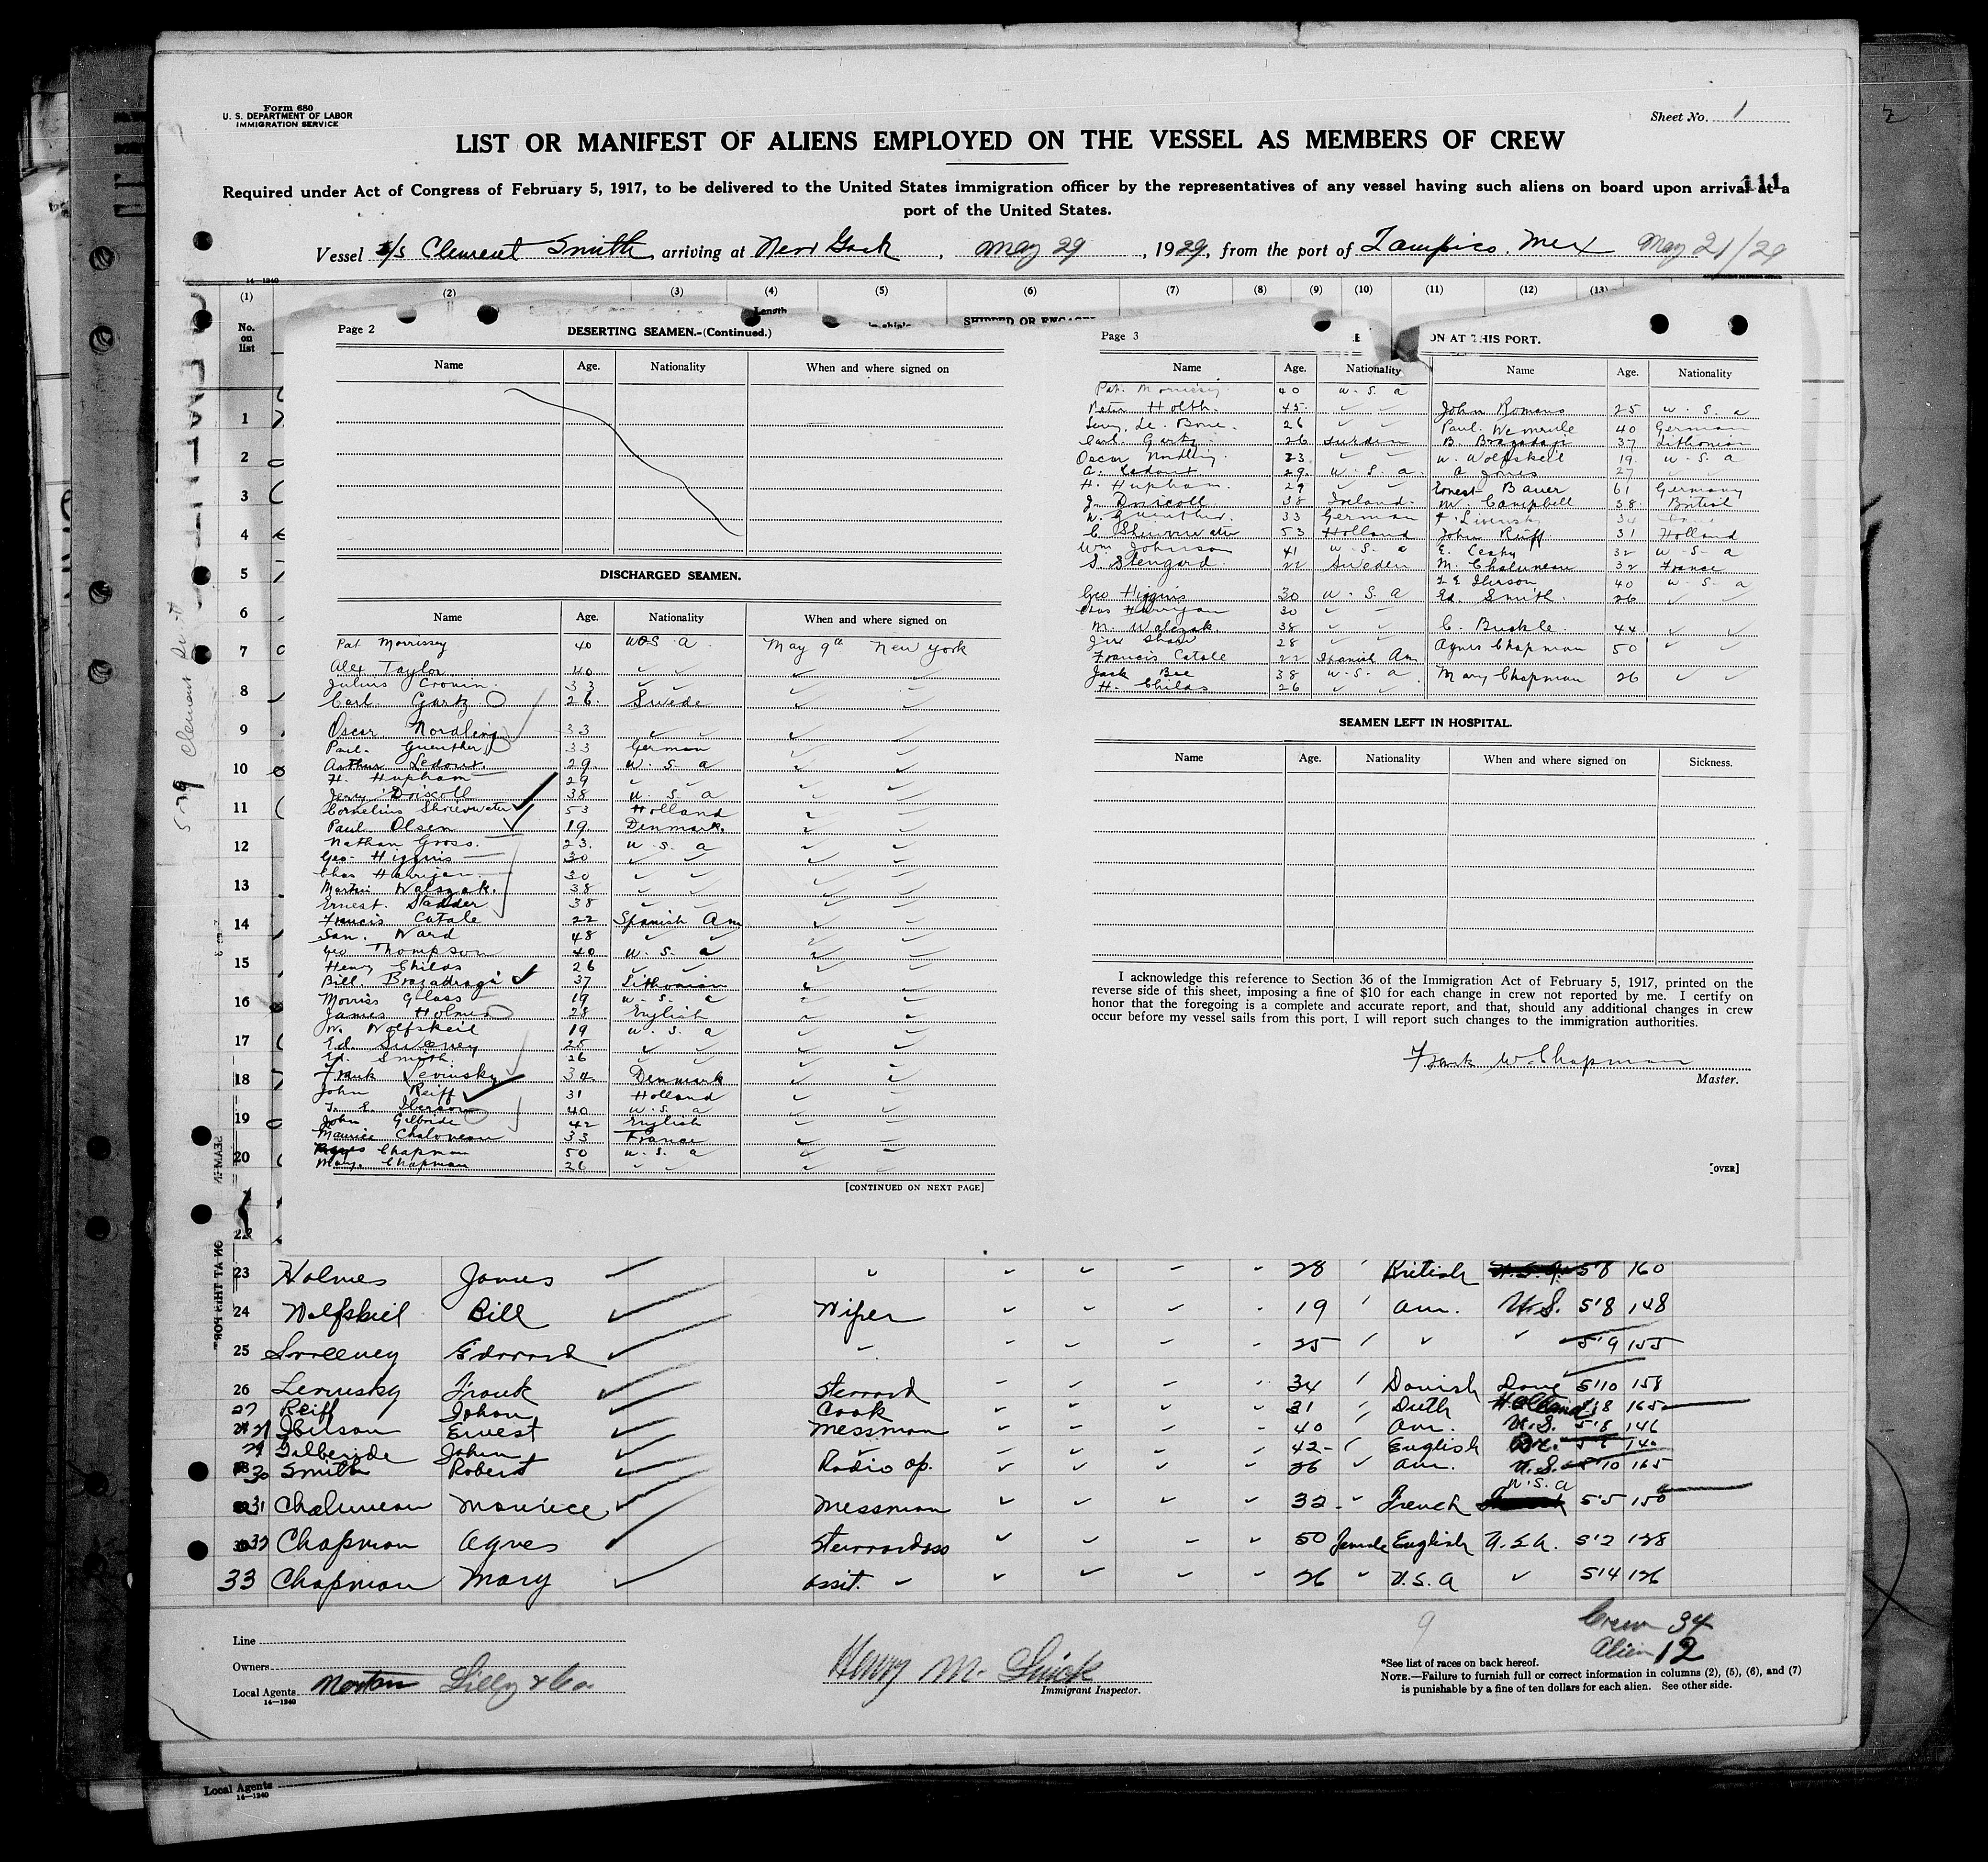 Form 680
U. S. DEPARTMENT OF LABOR
IMMIGRATION SERVICE
Sheet No. 1
LIST OR MANIFEST OF ALIENS EMPLOYED ON THE VESSEL AS MEMBERS OF CREW
111
Required under Act of Congress of February 5, 1917, to be delivered to the United States immigration officer by the representatives of any vessel having such aliens on board upon arrival at a
port of the United States.
Vessel s/s Clement Smith, arriving at New York, May 29, 1929, from the port of Tampico. Mex May 21/29
14-1240
(1) (2) (3) (4) (5) (6) (7) (8) (9) (10) (11) (12) (13)
No. on list
Length
SHIPPED OR ENGAGE
Page 2
DESERTING SEAMEN.-(Continued.)
Name Age. Nationality When and where signed on
DISCHARGED SEAMEN.
Name Age. Nationality When and where signed on
Pat Morrissey 40 U.S.A. May 9th New York
Alex Taylor 40 ✓ ✓ ✓ ✓
Julius Cronin. 33 ✓ ✓ ✓ ✓
Carl. Gartz 26. Swede ✓ ✓
Oscar. Nordling 33 ✓ ✓ ✓ ✓
Paul. Guenther 33 German ✓ ✓
Arthur Ledoux. 29. U. S. A ✓ ✓
H. Hupham 29 ✓ ✓ ✓ ✓
Jerry Driscoll 38 U. S. A ✓ ✓
Cornelius 53 Holland ✓ ✓
Paul Olsen 19. Denmark. ✓ ✓
Nathan Gross. 23. U. S. A ✓ ✓
Geo. Higgins 30 ✓ ✓ ✓ ✓
Chas Harrigan. 30 ✓ ✓ ✓ ✓
Martin Walszak. 38 ✓ ✓ ✓ ✓
Ernest. Stadder 38 ✓ ✓ ✓ ✓
Francis Catale 22 Spanish Am ✓ ✓
San. Ward 48 ✓ ✓ ✓ ✓
Geo Thompson 40 U. S. A ✓ ✓
Henry Childs 26 ✓ ✓ ✓ ✓
Bill. Brazadragi 37 Lithonian ✓ ✓
Morris Glass 19 U. S. A ✓ ✓
James Holmes 28 English ✓ ✓
W. Wolfskeil 19 U. S. A ✓ ✓
Ed. Sweeney 25 ✓ ✓ ✓ ✓
Ed. Smith. 26 ✓ ✓ ✓ ✓
Frank Levinsky 34 Denmark ✓ ✓
John Reiff 31 Holland ✓ ✓
40 U. S. A ✓ ✓
John Gilbride 42 English ✓ ✓
Maurice Chaluneau 33 France ✓ ✓
Agnes Chapman 50 U. S. A ✓ ✓
Mary. Chapman 26 ✓ ✓ ✓ ✓
[CONTINUED ON NEXT PAGE]
Page 3
ON AT THIS PORT.
Name Age. Nationality Name Age. Nationality
Pat. Morrissey 40 U. S. A
Peter Holth. 45. ✓ ✓ John Romans 25 U. S. A
26 ✓ ✓ Paul. 40 German
Carl. Gartz 26 Sweden B. Brazadagi 37 Lithonian
Oscar Nordling 33 ✓ ✓ W. Wolfskeil 19. U. S. A
A. Ledoux 29. U. S. A. A Jones 27 ✓ ✓
H. Hupham. 29 ✓ ✓ Ernest Bauer 61 Germany
J. Driscoll 38 Ireland. M. Campbell 38. British
W. Guenther. 33 German F. Livinsky 34
C. 53 Holland John Reiff 31 Holland
Wm Johnson 41 U. S. A E. Leahy 32 U. S. A
S. Stengard. 22 Sweden M. Chaluneau 32 France
40 U. S. A
Geo Higgins 30 U. S. A Ed. Smith. 26 ✓ ✓
Chas Harrigan 30 ✓ ✓
M. Walczak. 38 ✓ ✓ C. Buckle. 44 ✓ ✓
Jim Shaw 28 ✓ ✓ Agnes Chapman 50 ✓ ✓
Francis Catale 22 Spanish Am
Jack Bee 38 U. S. A. Mary Chapman 26 ✓ ✓
H. Childs 26 ✓ ✓
SEAMEN LEFT IN HOSPITAL.
Name Age. Nationality When and where signed on Sickness.
I acknowledge this reference to Section 36 of the Immigration Act of February 5, 1917, printed on the
reverse side of this sheet, imposing a fine of $10 for each change in crew not reported by me. I certify on
honor that the foregoing is a complete and accurate report, and that, should any additional changes in crew
occur before my vessel sails from this port, I will report such changes to the immigration authorities.
Frank W. Chapman
Master.
[OVER]
1
2
3
4
5
6
7
8
9
10
11
12
13
14
15
16
17
18
19
20
22
23 Holmes James ✓ ✓ ✓ ✓ ✓ ✓ 28 ' British 5'8 160
24 Wolfskeil Bill ✓ Wiper ✓ ✓ ✓ ✓ 19 ' Am. U.S. 5'8 148
25 Sweeney Edward ✓ ✓ ✓ ✓ ✓ ✓ 25 ' ✓ ✓ 5'9 155
26 Levinsky Frank ✓ Steward ✓ ✓ ✓ ✓ 34 ' Danish Dane 5'10 158
27 Reiff Johan ✓ Cook ✓ ✓ ✓ ✓ 31 ' Duth Holland 5'8 165
Ibilson Ernest ✓ Messman ✓ ✓ ✓ ✓ 40 ' Am. U.S. 5'8 146
29 Gilberide John ✓ ✓ ✓ ✓ ✓ ✓ 42 ' English Br. 140
30 Smith Robert ✓ Radio op. ✓ ✓ ✓ ✓ 26 ✓ Am. U.S. 5'10 165
31 Chaluneau Maurice ✓ Messman ✓ ✓ ✓ ✓ 32 ✓ French U.S.A 5'5 150
32 Chapman Agnes ✓ Stewardess ✓ ✓ ✓ ✓ 50 Female English U.S.A. 5'2 128
33 Chapman Mary ✓ Assit. ✓ ✓ ✓ ✓ ✓ 26 ✓ U.S.A ✓ 5'4 126
9
Crew 34
Alien 12
Line
Owners
Local Agents Norton Lilly & Co.
14-1240
Henry M.
Immigrant Inspector.
*See list of races on back hereof.
NOTE.—Failure to furnish full or correct information in columns (2), (5), (6), and (7)
is punishable by a fine of ten dollars for each alien. See other side.
Local Agents
14-1240